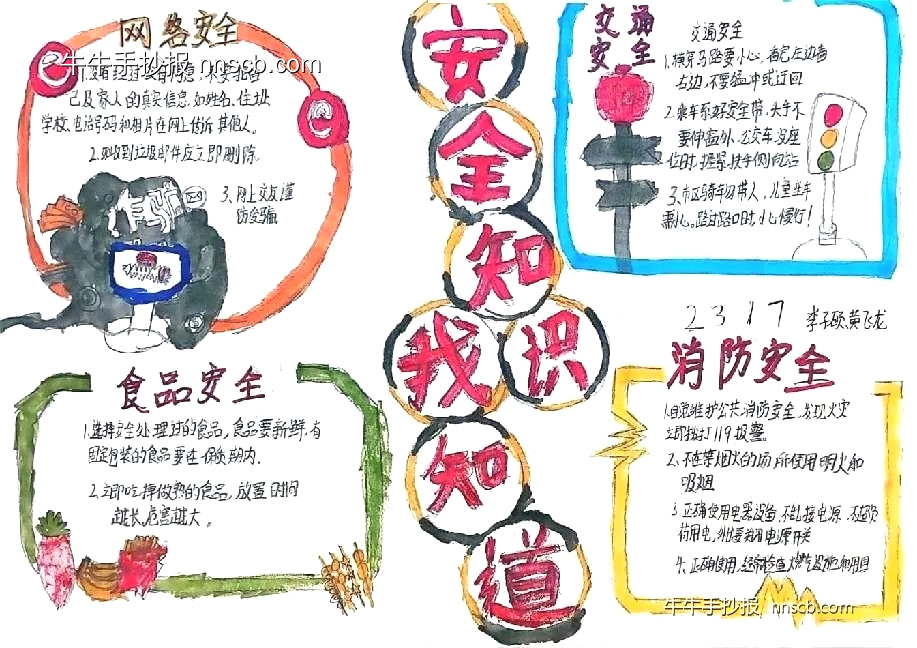 网络安全
牛牛手抄报 nnscb.com
己及家人的真实信息,如姓名、住址
学校、电话号码和相片在网上传诉其他人。
2.收到垃圾邮件应立即删除
3.网上交友谨
防受骗
食品安全
1.选择安全处理过的食品,食品要新鲜,有
固定包装的食品要在保质期内.
2.立即吃掉做熟的食品,放置时间
越长,危害越大。
安
全
知
识
我
知
道
交通
安全
交通安全
1.横穿马路要小心,看完左边看
右边,不要猛冲或迂回
2.乘车系好安全带,头手不
要伸窗外,公交车没座
位时,握紧扶手侧向站
3.市区骑车勿带人,儿童坐车
需小心。路过路口时,小心慢行!
2317 李子硕,黄飞龙
消防安全
1.自觉维护公共消防安全,发现火灾
立即拨打119报警。
2.不在禁烟火的场所使用明火和
吸烟
3.正确使用电器设备,不乱接电源,不超负
荷用电,外出要关闭电源开关
4.正确使用、经常检查燃气设施和用具
牛牛手抄报 nnscb.com